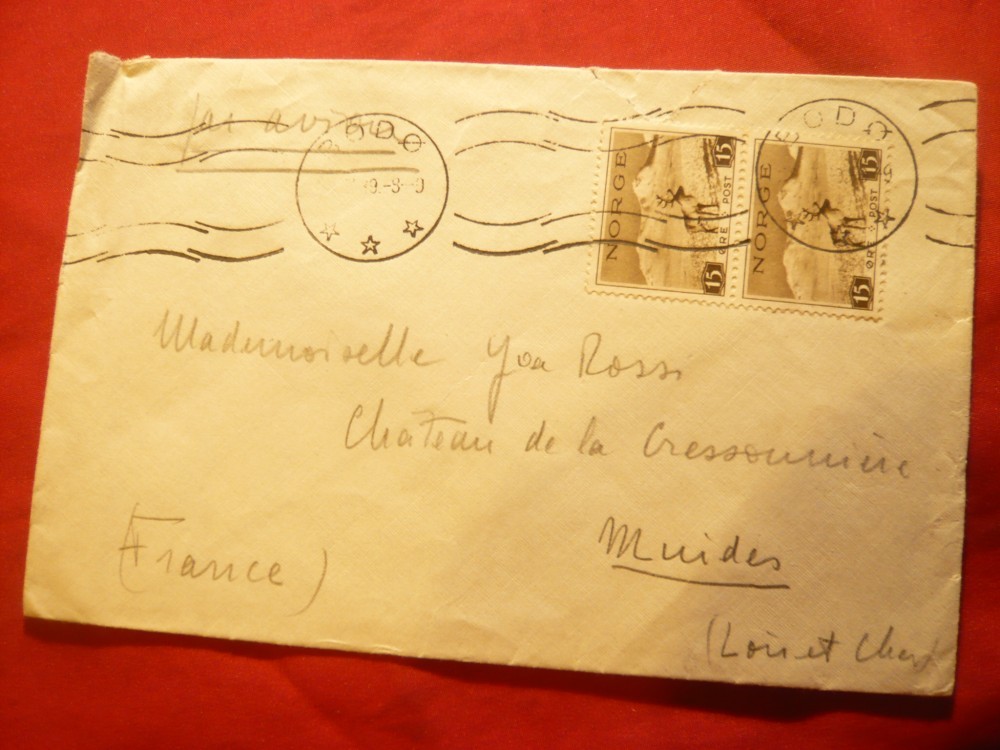 Par avion
BODØ
BODØ
NORGE
15
ØRE POST
15
NORGE
15
ØRE POST
15
Mademoiselle Yva Rossi
Château de la Cressonnière
Muides
(Loir et Cher)
(France)